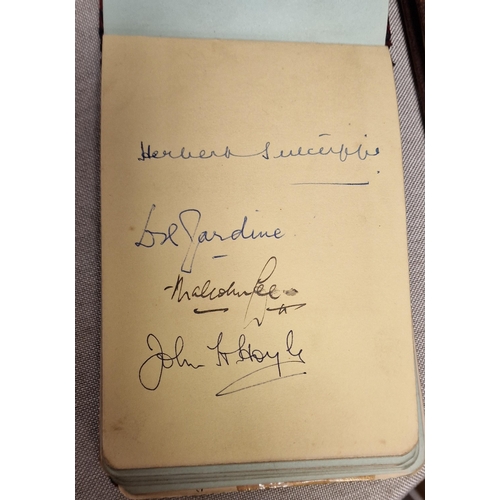 Herbert Sutcliffe
D R Jardine
Malcolm Lee
John H Hoyle